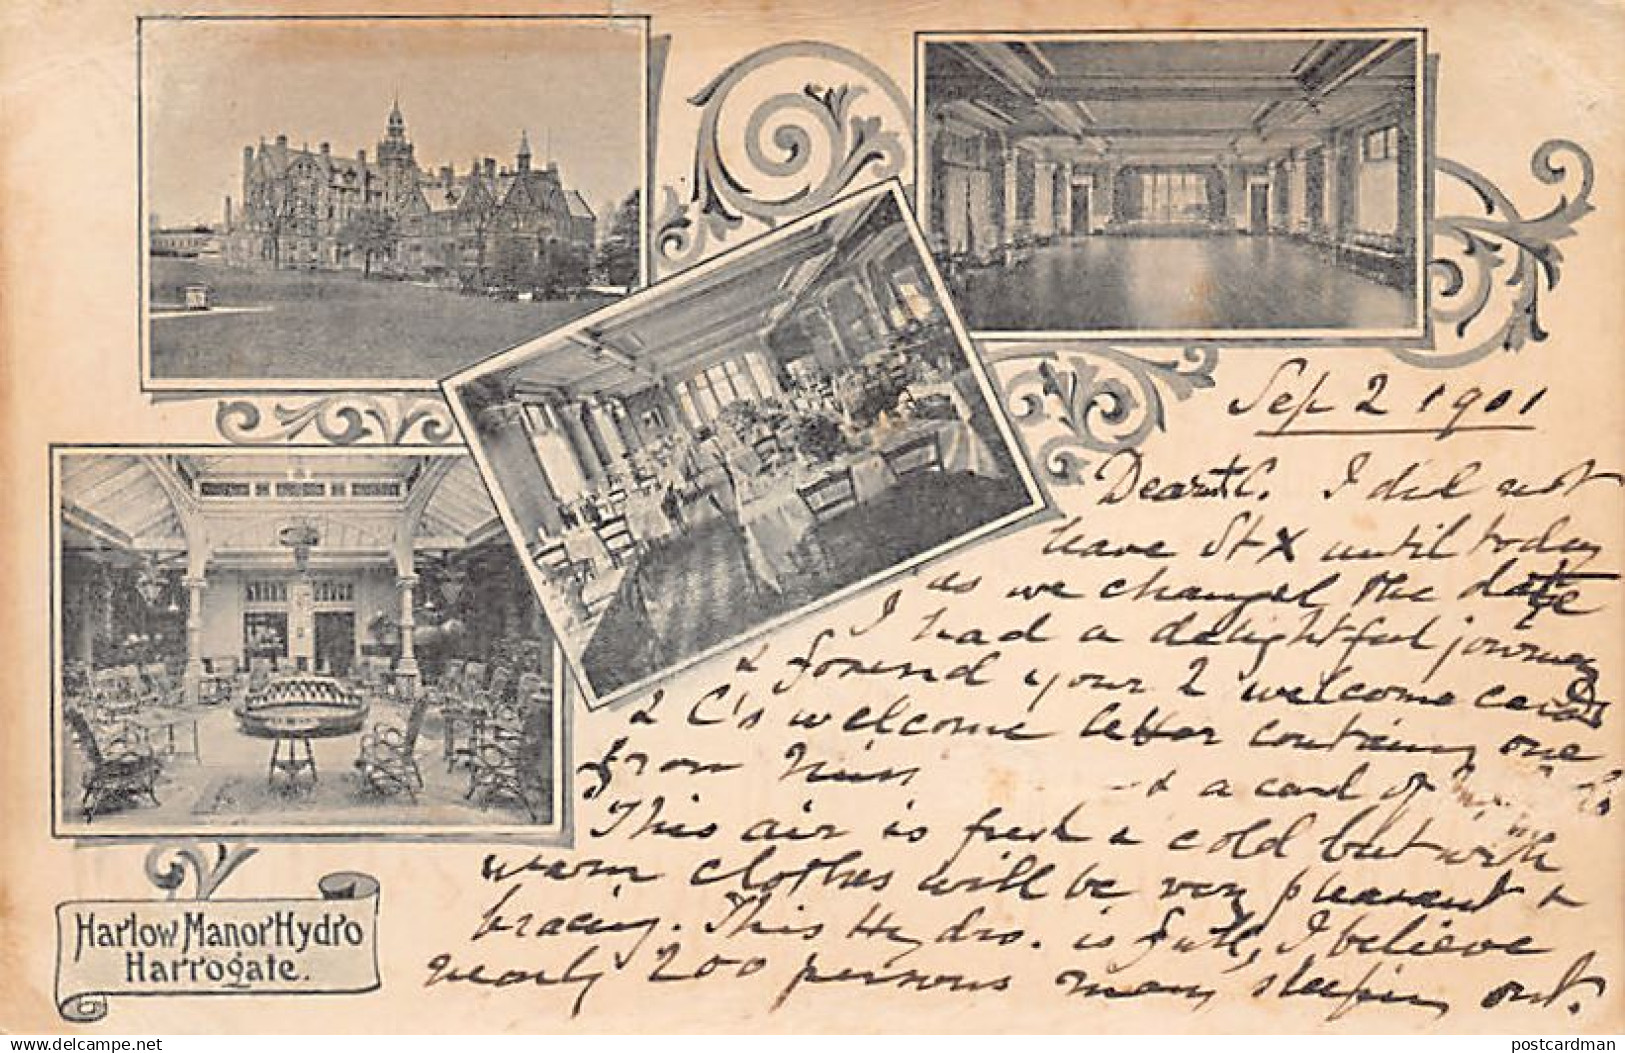 Sep 2 1901
Dearest C. I did not
leave St X until today
as we changed the date
I had a delightful journey
& found your 2 welcome cards
& C's welcome letter containing one
from
& a card of
This air is fresh & cold but with
warm clothes will be very pleasant &
bracing. This Hydro. is full, I believe
nearly 200 persons many sleeping out.
Harlow Manor Hydro
Harrogate.
www.delcampe.net
postcardman